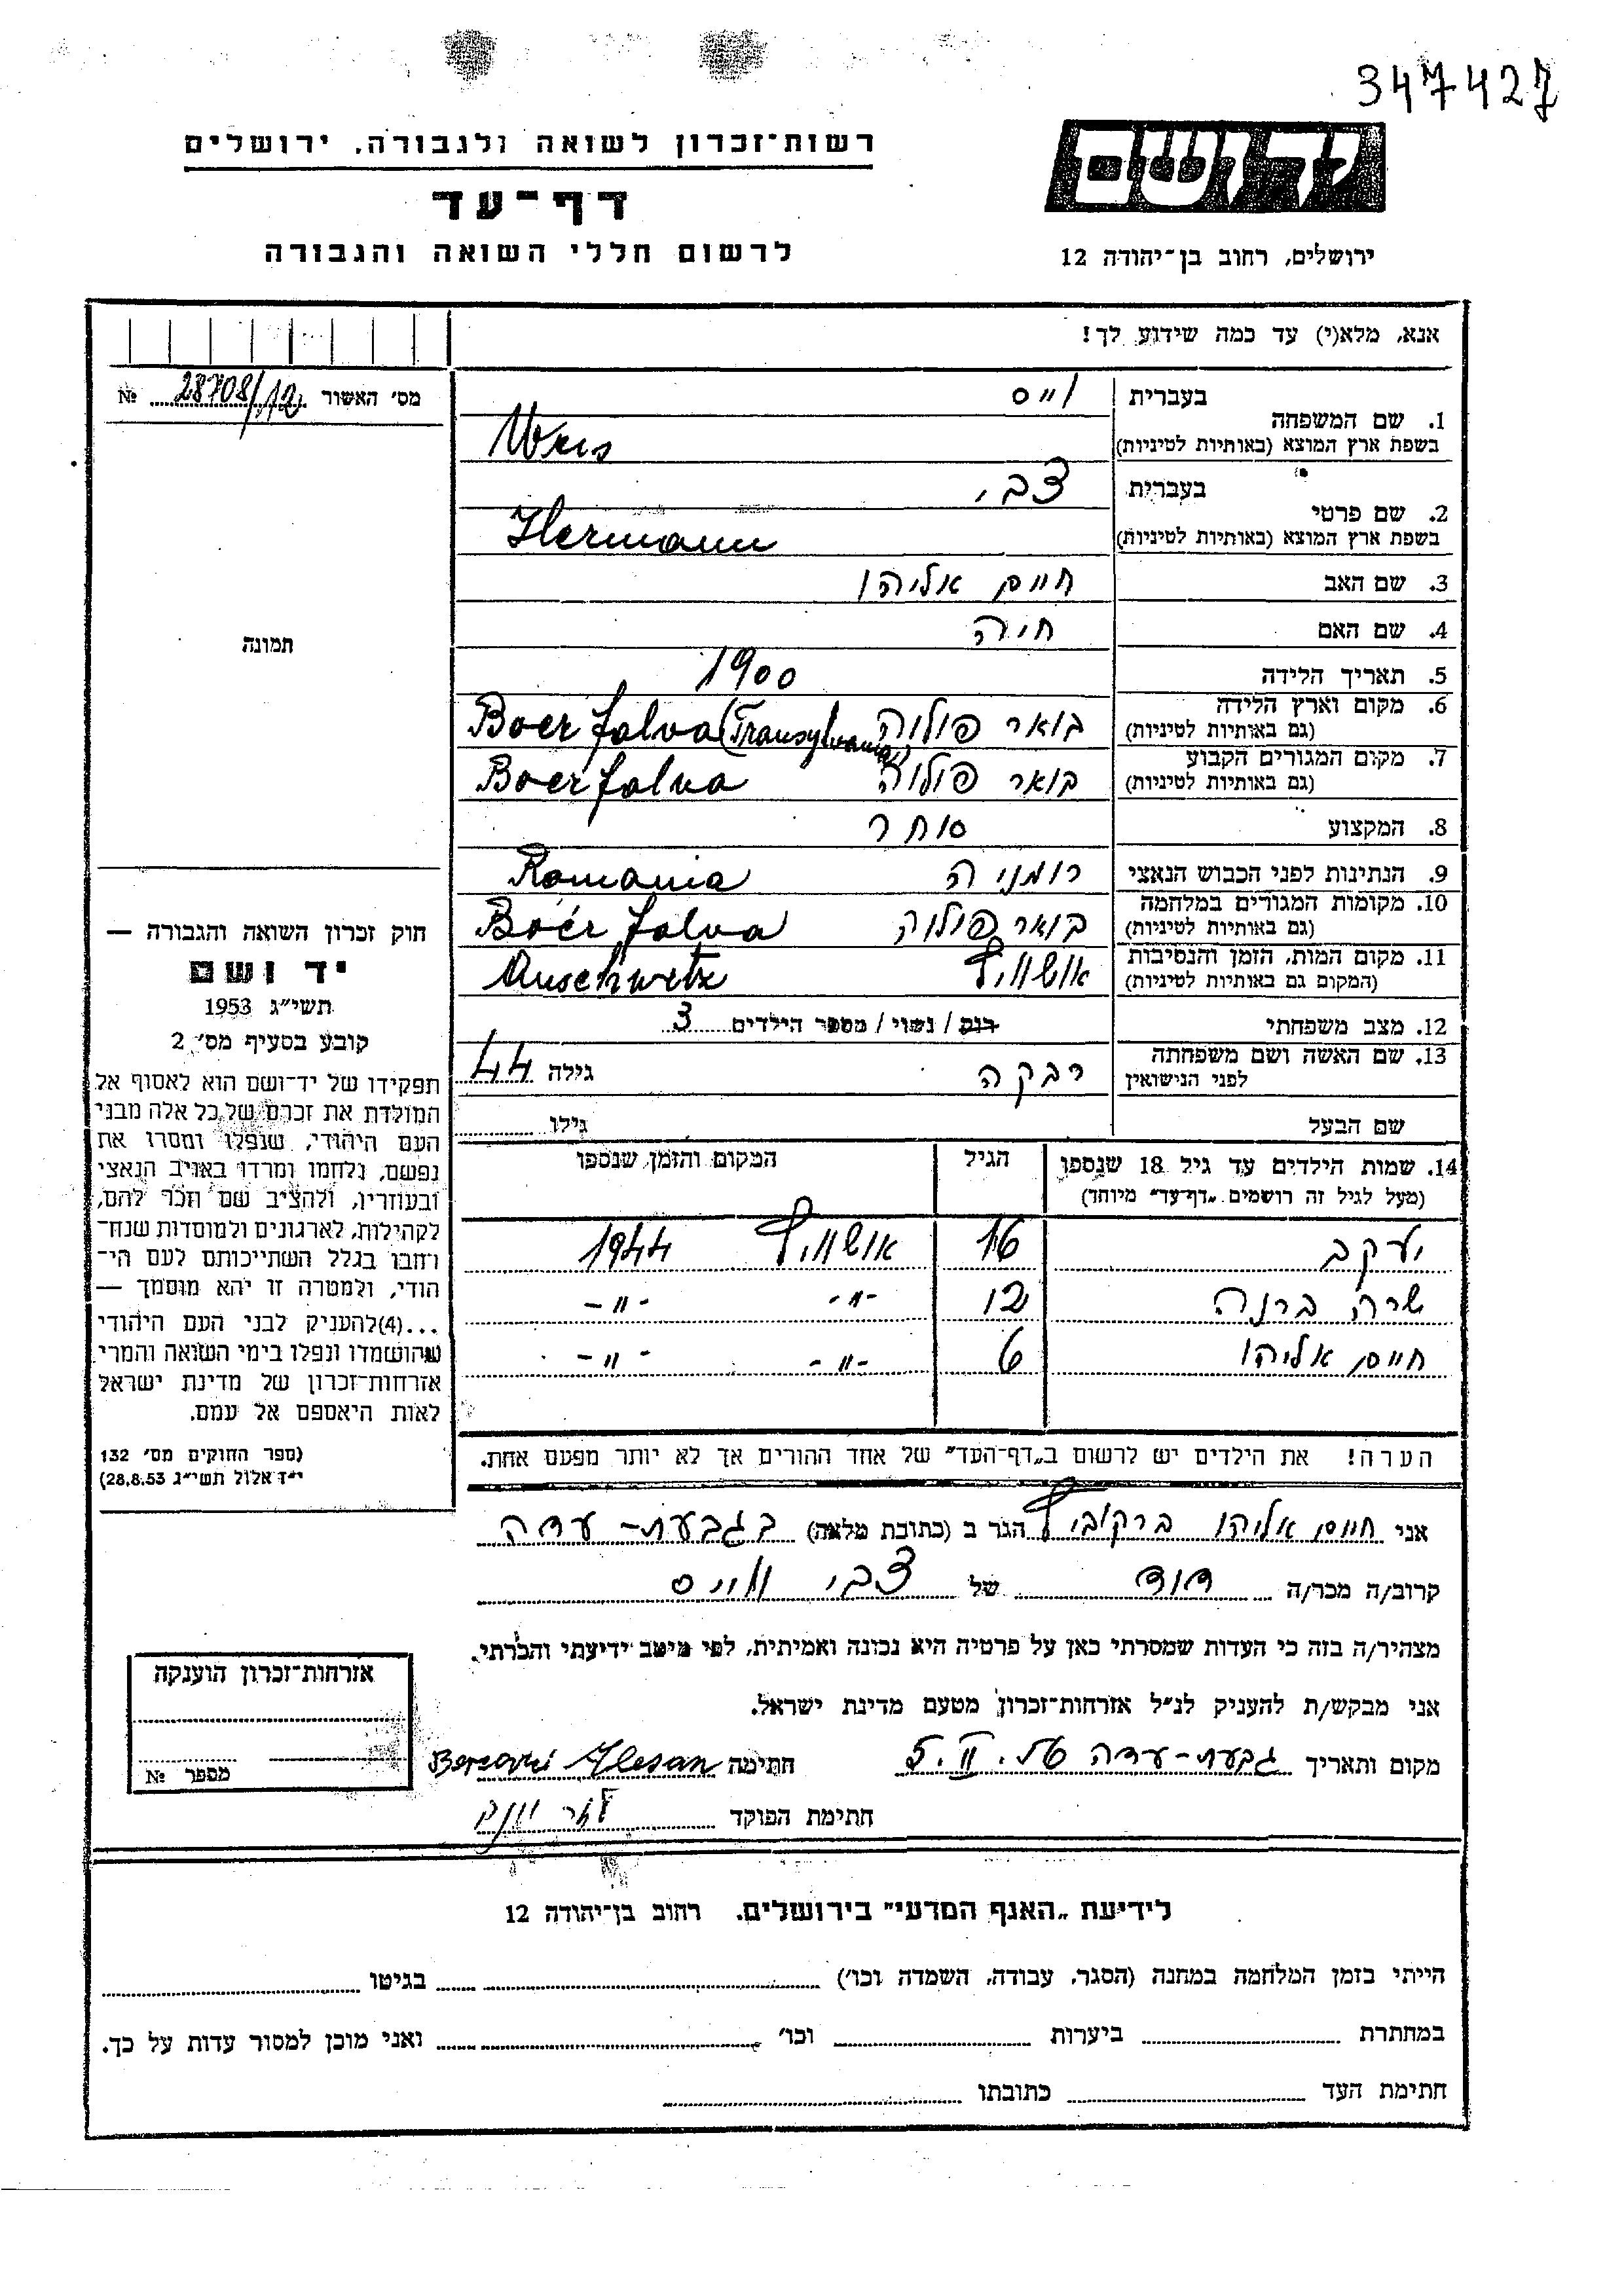 347427
יד ושם
רשות־זכרון לשואה ולגבורה, ירושלים
דף־עד
לרשום חללי השואה והגבורה
ירושלים, רחוב בן־יהודה 12
אנא, מלא(י) עד כמה שידוע לך!
מס׳ האשור 28708/12 №
תמונה
1. שם המשפחה
בעברית וייס
בשפת ארץ המוצא (באותיות לטיניות) Weis
2. שם פרטי
בעברית צבי
בשפת ארץ המוצא (באותיות לטיניות) Hermann
3. שם האב חיים אליהו
4. שם האם חיה
5. תאריך הלידה 1900
6. מקום וארץ הלידה בואר פולוה Boer falva (Transylvania)
(גם באותיות לטיניות)
7. מקום המגורים הקבוע בואר פולוה Boer falva
(גם באותיות לטיניות)
8. המקצוע סוחר
9. הנתינות לפני הכבוש הנאצי רומניה Romania
10. מקומות המגורים במלחמה בואר פולוה Boér falva
(גם באותיות לטיניות)
11. מקום המות, הזמן והנסיבות אושוויץ Auschwetz
(המקום גם באותיות לטיניות)
12. מצב משפחתי רוק / נשוי / מספר הילדים 3
13. שם האשה ושם משפחתה רבקה גילה 44
לפני הנישואין
שם הבעל גילו
14. שמות הילדים עד גיל 18 שנספו הגיל המקום והזמן שנספו
(מעל לגיל זה רושמים „דף־עד״ מיוחד)
יעקב 16 אושוויץ 1944
שרה ברנה 12 -״- -״-
חיים אליהו 6 -״- -״-
הערה! את הילדים יש לרשום ב„דף־העד״ של אחד ההורים אך לא יותר מפעם אחת.
חוק זכרון השואה והגבורה —
יד ושם
תשי״ג 1953
קובע בסעיף מס׳ 2
תפקידו של יד־ושם הוא לאסוף אל
המולדת את זכרם של כל אלה מבני
העם היהודי, שנפלו ומסרו את
נפשם, נלחמו ומרדו באויב הנאצי
ובעוזריו, ולהציב שם וזכר להם,
לקהילות, לארגונים ולמוסדות שנח־
רחבו בגלל השתייכותם לעם הי־
הודי, ולמטרה זו יהא מוסמך —
...(4)להעניק לבני העם היהודי
שהושמדו ונפלו בימי השואה והמרי
אזרחות־זכרון של מדינת ישראל
לאות היאספם אל עמם.
(ספר החוקים מס׳ 132
י״ד אלול תשי״ג 28.8.53)
אני חיים אליהו ברקוביץ הגר ב (כתובת מלאה) בגבעת-עדה
קרוב/ה מכר/ה דוד של צבי ווייס
מצהיר/ה בזה כי העדות שמסרתי כאן על פרטיה היא נכונה ואמיתית, לפי מיטב ידיעתי והכרתי.
אני מבקש/ת להעניק לנ״ל אזרחות־זכרון מטעם מדינת ישראל.
מקום ותאריך גבעת-עדה 5.II. חתימה
חתימת הפוקד
אזרחות־זכרון הוענקה
מספר №
לידיעת „האגף המדעי״ בירושלים, רחוב בן־יהודה 12
הייתי בזמן המלחמה במחנה (הסגר, עבודה, השמדה וכו׳) בגיטו
במחתרת ביערות וכו׳ ואני מוכן למסור עדות על כך.
חתימת העד כתובתו